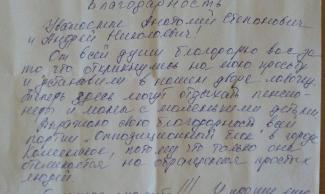 Благодарность
Уважаемые Анатолий Степанович
и Андрей Николаевич!
От всей души благодарю вас за
то, что откликнулись на мою просьбу
и установили в нашем дворе лавочку.
Теперь здесь могут отдыхать пенсио-
неры и мамы с маленькими детьми.
Выражаю свою благодарность всей
партии "Оппозиционный блок" в городе
потому что только она
откликается на обращения простых
людей.
!!! И прошу еще